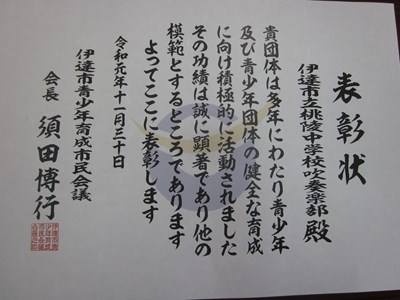 表彰状
伊達市立桃陵中学校吹奏楽部 殿
貴団体は多年にわたり青少年
及び青少年団体の健全な育成
に向け積極的に活動されました
その功績は誠に顕著であり他の
模範とするところであります
よってここに表彰します
令和元年十一月三十日
伊達市青少年育成市民会議
会長 須田博行